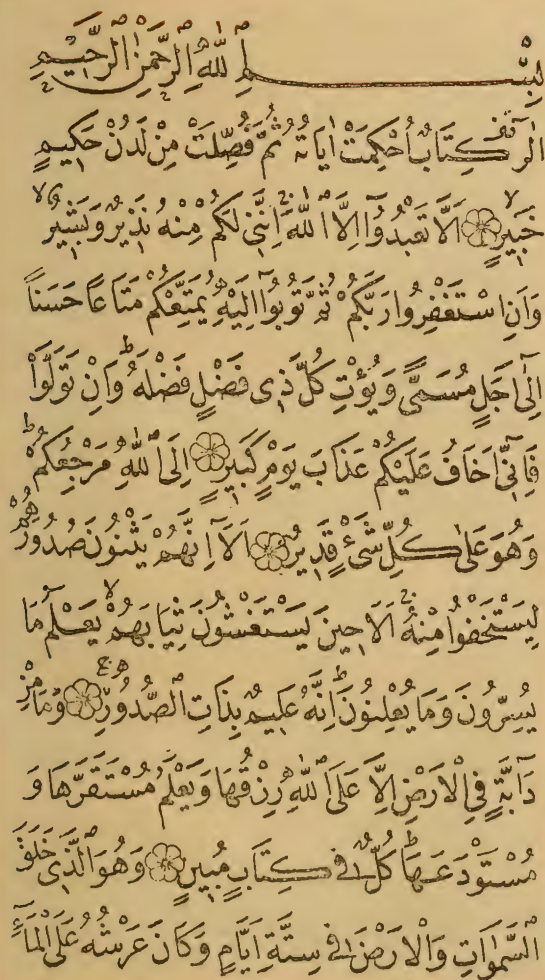 بِسْمِ اللّٰهِ الرَّحْمٰنِ الرَّحِيمِ
الٓرٰ كِتَابٌ اُحْكِمَتْ اٰيَاتُهُ ثُمَّ فُصِّلَتْ مِنْ لَدُنْ حَكِيمٍ
خَبِيرٍ ۝ اَلَّا تَعْبُدُوٓا اِلَّا اللّٰهَ اِنَّنِى لَكُمْ مِنْهُ نَذِيرٌ وَبَشِيرٌ
وَاَنِ اسْتَغْفِرُوا رَبَّكُمْ ثُمَّ تُوبُوٓا اِلَيْهِ يُمَتِّعْكُمْ مَتَاعًا حَسَنًا
اِلٰٓى اَجَلٍ مُسَمًّى وَيُؤْتِ كُلَّ ذِى فَضْلٍ فَضْلَهُ ۜ وَاِنْ تَوَلَّوْا
فَاِنِّىٓ اَخَافُ عَلَيْكُمْ عَذَابَ يَوْمٍ كَبِيرٍ ۝ اِلَى اللّٰهِ مَرْجِعُكُمْ ط
وَهُوَ عَلٰى كُلِّ شَىْءٍ قَدِيرٌ ۝ اَلَآ اِنَّهُمْ يَثْنُونَ صُدُورَهُمْ
لِيَسْتَخْفُوا مِنْهُ اَلَا حِينَ يَسْتَغْشُونَ ثِيَابَهُمْ يَعْلَمُ مَا
يُسِرُّونَ وَمَا يُعْلِنُونَ ط اِنَّهُ عَلِيمٌ بِذَاتِ الصُّدُورِ ۝ وَمَا مِنْ
دَآبَّةٍ فِى الْاَرْضِ اِلَّا عَلَى اللّٰهِ رِزْقُهَا وَيَعْلَمُ مُسْتَقَرَّهَا وَ
مُسْتَوْدَعَهَا ط كُلٌّ فِى كِتَابٍ مُبِينٍ ۝ وَهُوَ الَّذِى خَلَقَ
السَّمٰوَاتِ وَالْاَرْضَ فِى سِتَّةِ اَيَّامٍ وَكَانَ عَرْشُهُ عَلَى الْمَآءِ